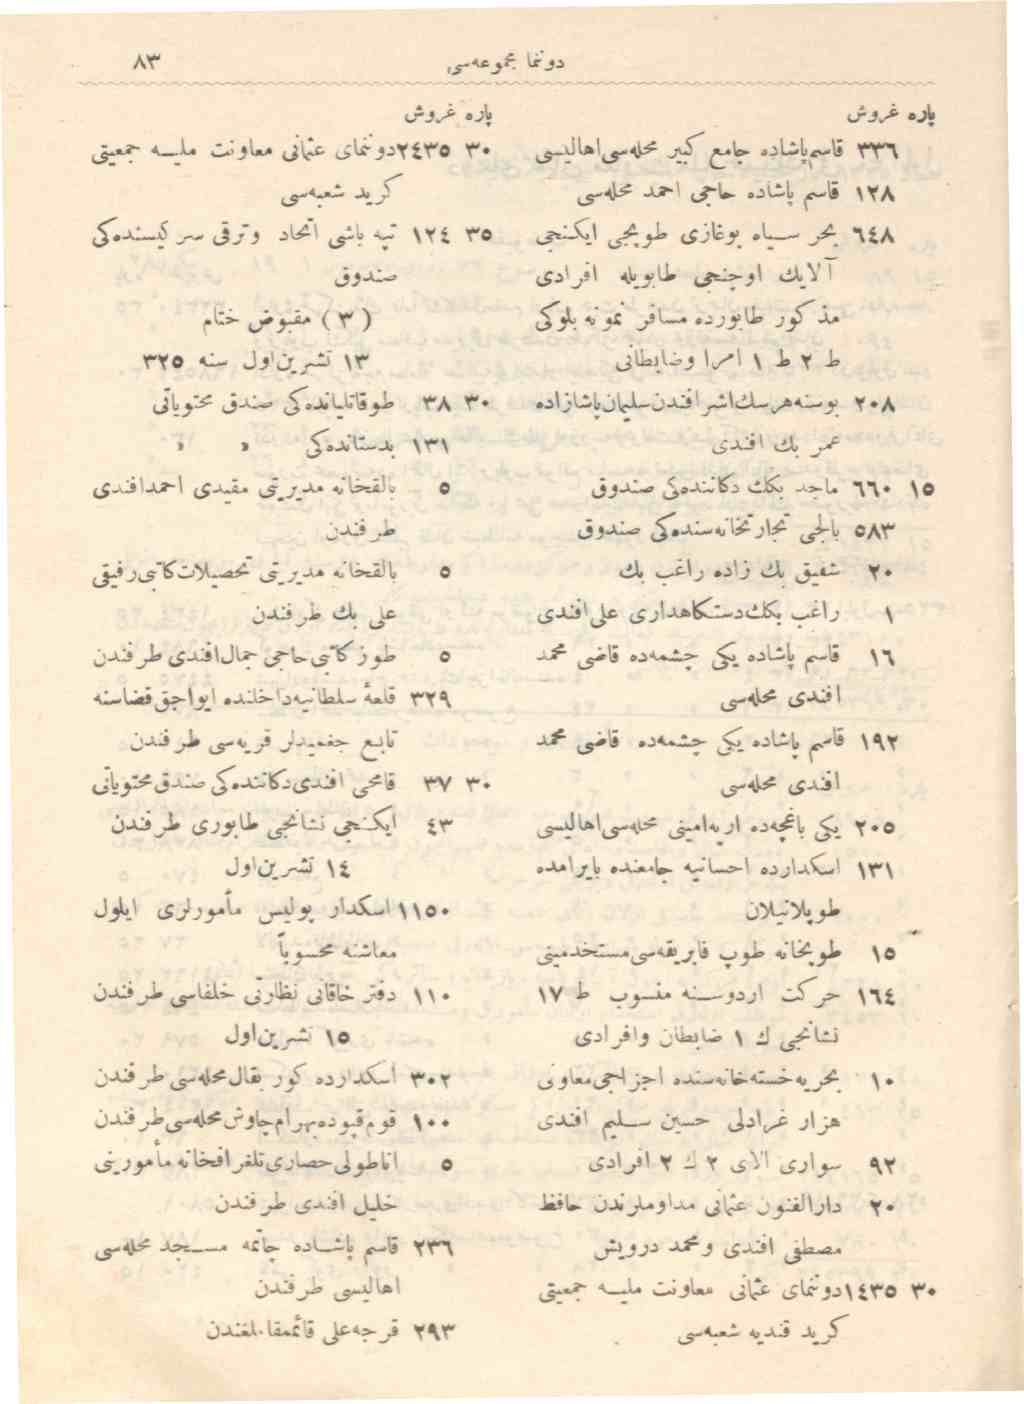 دوننما مجموعه‌سی
٨٣
پاره غروش
٣٣٦ قاسم‌پاشاده جامع كبیر محله‌سی‌اهالیسی
١٢٨ قاسم پاشاده حاجی احمد محله‌سی
٦٤٨ بحر سیاه بوغازی طوپجی ایكنجی
آلایك اوچنجی طابوریله افرادی
مذكور طابورده مسافر نمونه بلوكی
ط ٢ ط ١ امرا وضابطانی
٢٠٨ بوسنه‌هرسك‌اشرافندن‌سلیمان‌پاشازاده
عمر بك افندی
١٥ ٦٦٠ ماجد بكك دكاننده‌كی صندوق
٥٨٣ بالجی تجارتخانه‌سنده‌كی صندوق
٢٠ شفیق بك زاده راغب بك
١ راغب بكك‌دستكاهداری علی‌افندی
١٦ قاسم پاشاده یكی چشمه‌ده قاضی محمد
افندی محله‌سی
١٩٢ قاسم پاشاده یكی چشمه‌ده قاضی محمد
افندی محله‌سی
٢٠٥ یكی باغچه‌ده ارپه‌امینی محله‌سی‌اهالیسی
١٣١ اسكدارده احسانیه جامعنده بایرامده
طوپلانیلان
١٥ طوپخانه طوپ فابریقه‌سی‌مستخدمینی
١٦٤ حركت اردوسنه منسوب ط ١٧
نشانجی ك ١ ضابطان وافرادی
١٠ بحریه‌خسته‌خانه‌سنده اجزاجی‌معاونی
هزار غرادلی حسین سلیم افندی
٩٢ سواری الای ٢ ك ٢ افرادی
٢٠ دارالفنون عثمانی مداوملرندن حافظ
مصطفی افندی ومحمد درویش
٣٠ ١٤٣٥دوننمای عثمانی معاونت ملیه جمعیتی
كرید قندیه شعبه‌سی
پاره غروش
٣٠ ٢٤٣٥دوننمای عثمانی معاونت ملیه جمعیتی
كرید شعبه‌سی
٣٥ ١٢٤ تپه باشی اتحاد وترقی سركیسنده‌كی
صندوق
( ٣ ) مقبوض ختام
١٣ تشرین‌اول سنه ٣٢٥
٣٠ ٣٨ طوقاتلیانده‌كی صندق محتویاتی
١٣١ بدستانده‌كی » »
٥ بالقخانه مدیریتی مقیدی احمدافندی
طرفندن
٥ بالقخانه مدیریتی تحصیلات‌كاتبی‌رفیقی
علی بك طرفندن
٥ طوز كاتبی‌حاجی جمال‌افندی طرفندن
٣٢٩ قلعهٔ سلطانیه‌داخلنده ایواجق‌قضاسنه
تابع جغمیدلر قریه‌سی طرفندن
٣٠ ٣٧ قامحی افندی‌دكاننده‌كی صندق‌محتویاتی
٤٣ ایكنجی نشانجی طابوری طرفندن
١٤ تشرین‌اول
١١٥٠ اسكدار پولیس مأمورلری ایلول
معاشنه محسوباً
١١٠ دفتر خاقانی نظارتی خلفاسی طرفندن
١٥ تشرین‌اول
٣٠٢ اسكدارده كور بقال‌محله‌سی طرفندن
١٠٠ قوم‌قپوده‌بهرام‌چاوش‌محله‌سی‌طرفندن
٥ اناطولی‌حصاری‌تلغرافخانه مأمورینی
خلیل افندی طرفندن
٢٣٦ قاسم پاشاده چاتمه مسجد محله‌سی
اهالیسی طرفندن
٢٩٣ قرجه‌علی قائمقاملغندن